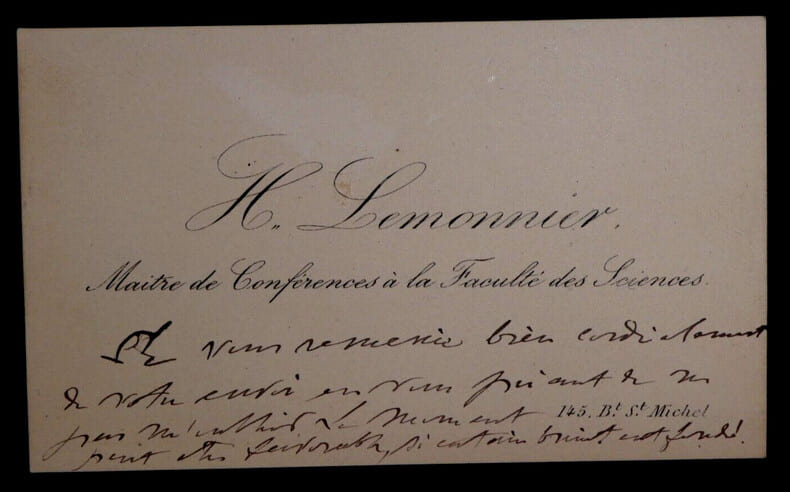 H. Lemonnier.
Maitre de Conférences à la Faculté des Sciences.
vous remercie bien cordialement
de votre envoi en vous priant de ne
pas m'oublier. Le moment
145, B.t S.t Michel
peut être favorable, si certain bruit est fondé.